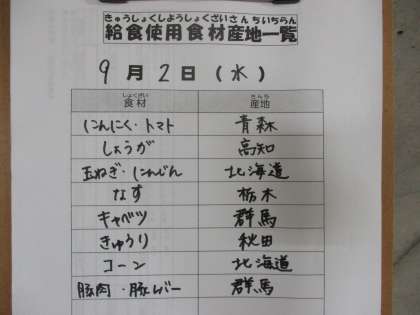 きゅうしょくしようしょくざいさんちいちらん
給食使用食材産地一覧
9月2日(水)
しょくざい さんち
食材 産地
にんにく・トマト 青森
しょうが 高知
玉ねぎ・にんじん 北海道
なす 栃木
キャベツ 群馬
きゅうり 秋田
コーン 北海道
豚肉・豚レバー 群馬